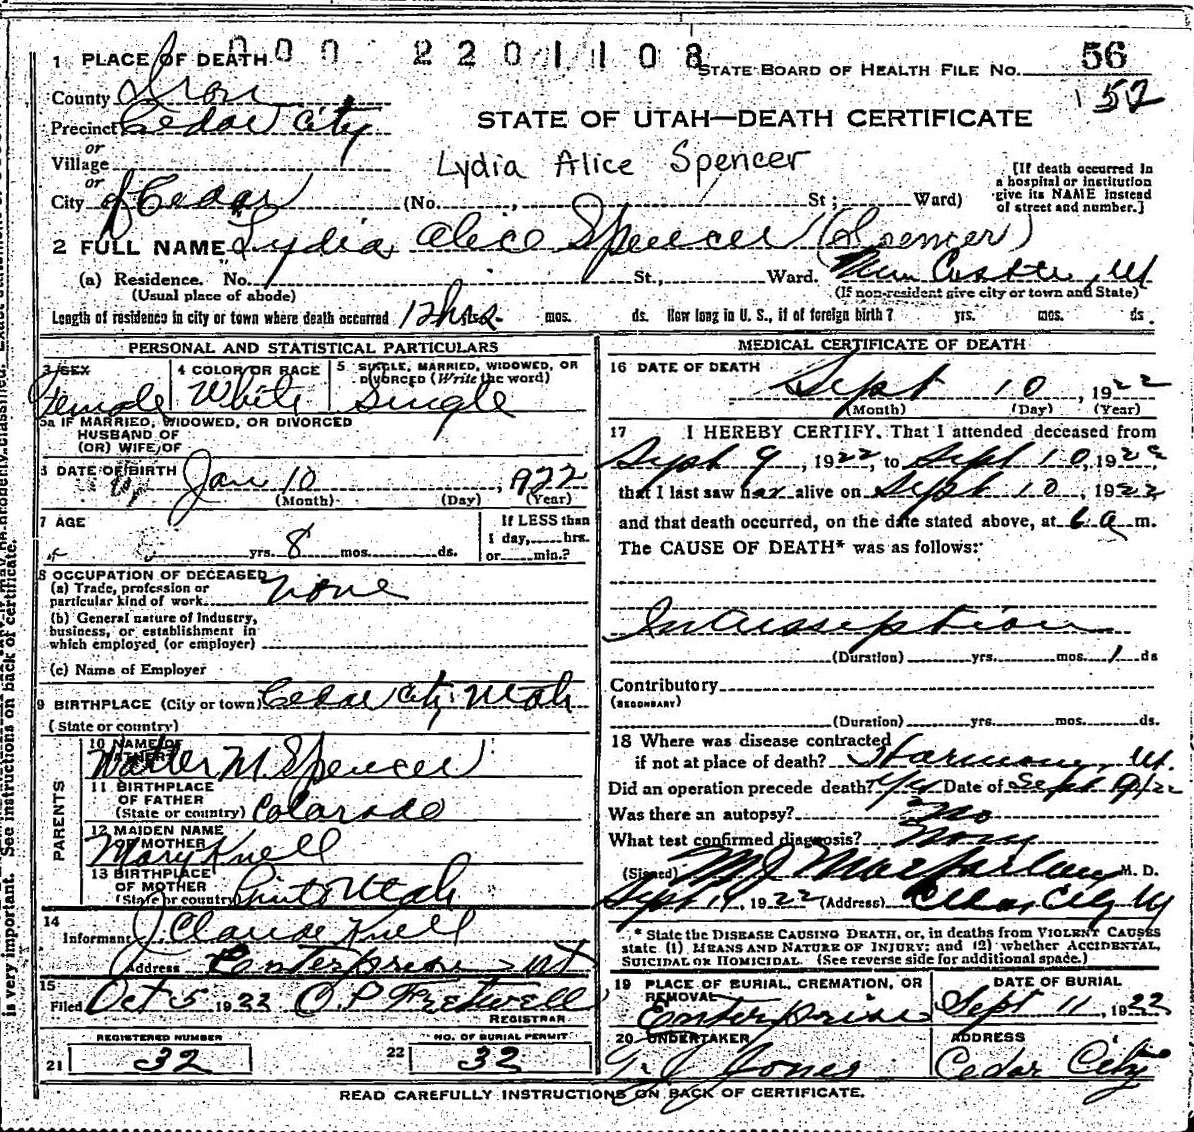 000 2201108
1 PLACE OF DEATH
STATE BOARD OF HEALTH FILE No. 56
County Iron
152
Precinct Cedar City
STATE OF UTAH—DEATH CERTIFICATE
or
Village
Lydia Alice Spencer
or
City of Cedar (No. , St ; Ward)
[If death occurred in a hospital or institution give its NAME instead of street and number.]
2 FULL NAME Lydia Alice Spencer (Spencer)
(a) Residence. No. St., Ward. New Castle, Ut
(Usual place of abode) (If non-resident give city or town and State)
Length of residence in city or town where death occurred 12 hrs. mos. ds. How long in U. S., if of foreign birth? yrs. mos. ds.
PERSONAL AND STATISTICAL PARTICULARS
3 SEX Female
4 COLOR OR RACE White
5 SINGLE, MARRIED, WIDOWED, OR DIVORCED (Write the word) Single
5a IF MARRIED, WIDOWED, OR DIVORCED
HUSBAND OF
(OR) WIFE OF
6 DATE OF BIRTH Jan 10, 1922
(Month) (Day) (Year)
7 AGE yrs. 8 mos. ds.
If LESS than
1 day, hrs.
or min.?
8 OCCUPATION OF DECEASED
(a) Trade, profession or
particular kind of work none
(b) General nature of Industry,
business, or establishment in
which employed (or employer)
(c) Name of Employer
9 BIRTHPLACE (City or town) Cedar City, Utah
(State or country)
PARENTS
10 NAME OF FATHER Walter M Spencer
11 BIRTHPLACE
OF FATHER
(State or country) Colorado
12 MAIDEN NAME
OF MOTHER Mary Knell
13 BIRTHPLACE
OF MOTHER
(State or country) Pinto Utah
14
Informant J Claude Knell
Address Enterprise Ut
15
Filed Oct 5 1922 O P Fretwell
REGISTRAR
REGISTERED NUMBER
21 32
NO. OF BURIAL PERMIT
22 32
MEDICAL CERTIFICATE OF DEATH
16 DATE OF DEATH
Sept 10, 1922
(Month) (Day) (Year)
17 I HEREBY CERTIFY. That I attended deceased from
Sept 9, 1922, to Sept 10, 1922,
that I last saw her alive on Sept 10, 1922
and that death occurred, on the date stated above, at 6 a m.
The CAUSE OF DEATH* was as follows:
Intussuseption
(Duration) yrs. mos. 1 ds
Contributory
(SECONDARY)
(Duration) yrs. mos. ds.
18 Where was disease contracted
if not at place of death? Harmony, Ut.
Did an operation precede death? Yes Date of Sept 9/22
Was there an autopsy? No
What test confirmed diagnosis? None
(Signed) M J Macfarlane M. D.
Sept 14, 1922 (Address) Cedar City Ut
* State the DISEASE CAUSING DEATH, or, in deaths from VIOLENT CAUSES
state (1) MEANS AND NATURE OF INJURY; and (2) whether ACCIDENTAL,
SUICIDAL OR HOMICIDAL. (See reverse side for additional spade.)
19 PLACE OF BURIAL, CREMATION, OR
REMOVAL
Enterprise
DATE OF BURIAL
Sept 11, 1922
20 UNDERTAKER
T. J Jones
ADDRESS
Cedar City
READ CAREFULLY INSTRUCTIONS ON BACK OF CERTIFICATE.
is very important. See instructions on back of certificate.